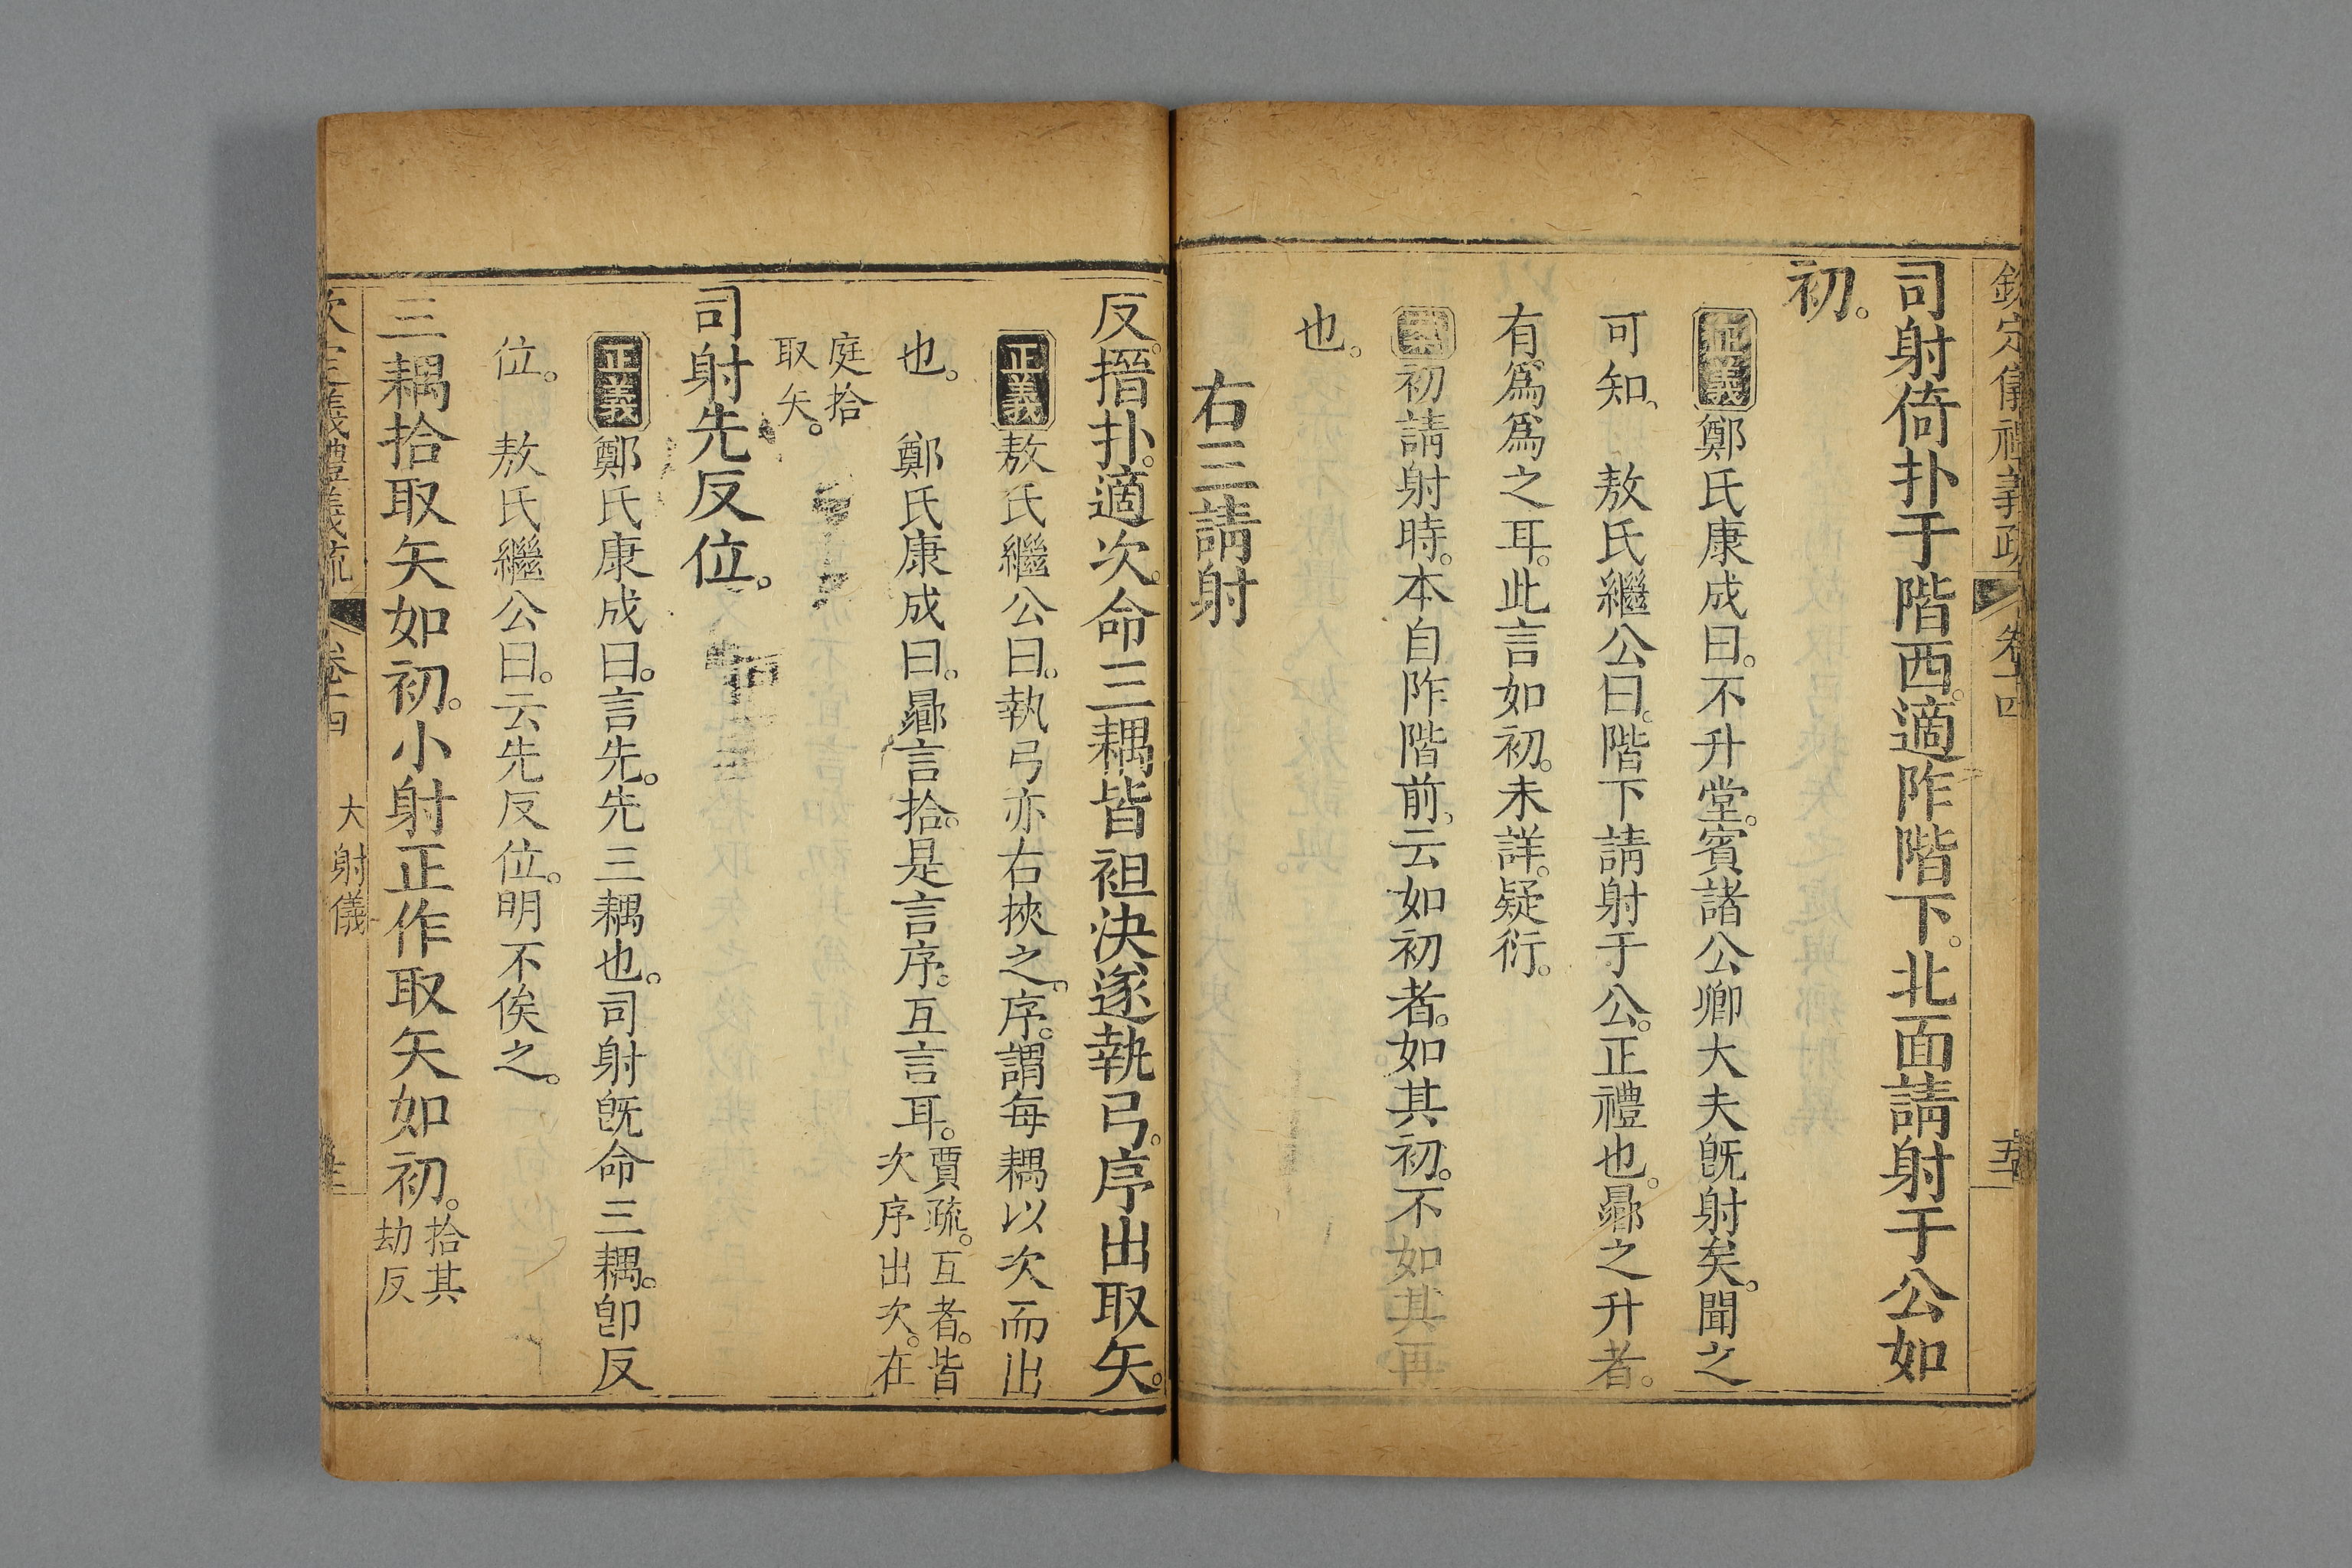 欽定儀禮義疏 卷十四
司射倚扑于階西。適阼階下。北面請射于公如
初。
正義鄭氏康成曰。不升堂。賓諸公卿大夫旣射矣。聞之
可知、 敖氏繼公曰。階下請射于公。正禮也。曏之升者。
有爲爲之耳。此言如初。未詳。疑衍。
案初請射時。本自阼階前。云如初者。如其初。不如其再
也。
右三請射
反搢扑。適次。命三耦皆袒決遂執弓。序出取矢。
正義敖氏繼公曰。執弓亦右挾之。序。謂每耦以次而出
也。 鄭氏康成曰。曏言拾。是言序。互言耳。賈疏。互者。皆
次序出次。在
庭拾
取矢。
司射先反位。
正義鄭氏康成曰。言先。先三耦也。司射旣命三耦。卽反
位。 敖氏繼公曰。云先反位。明不俟之。
三耦拾取矢如初。小射正作取矢如初。拾其
劫反
欽定儀禮義疏 卷十四 大射儀